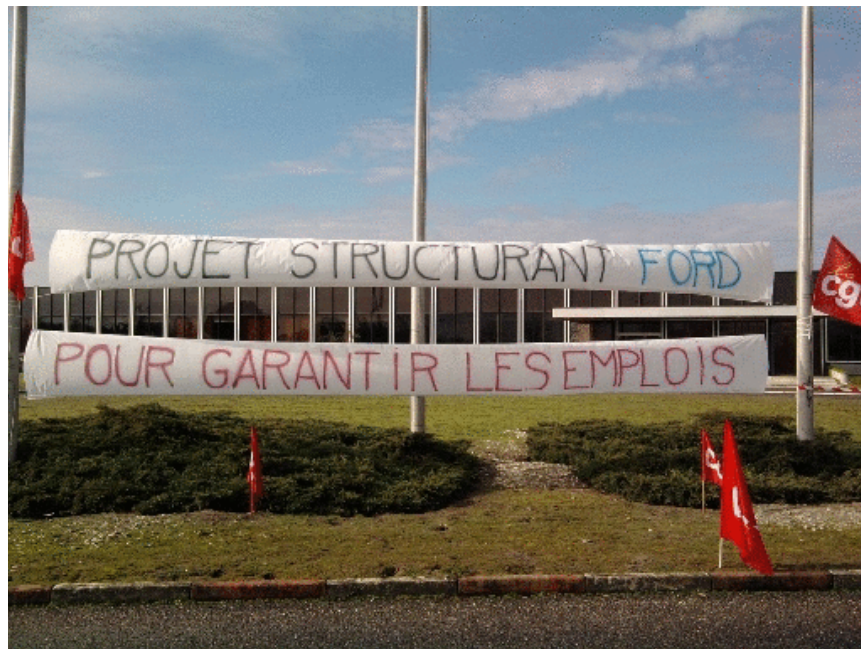 PROJET STRUCTURANT FORD
POUR GARANTIR LES EMPLOIS
cg